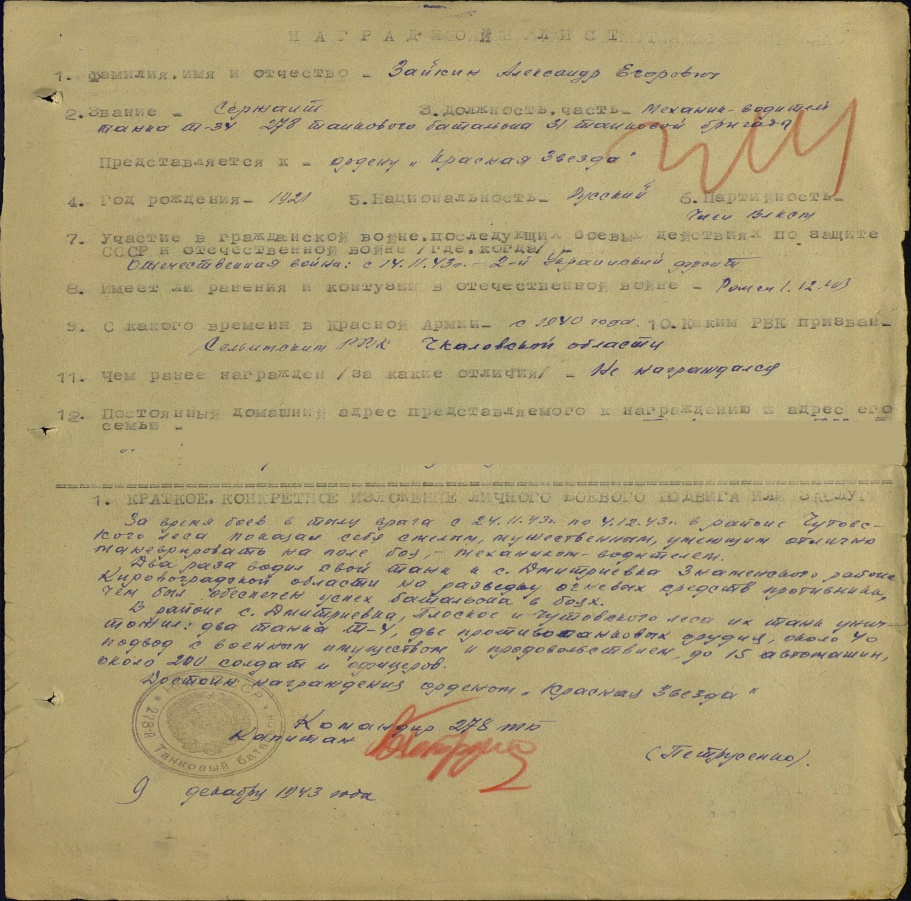 НАГРАДНОЙ ЛИСТ
1. Фамилия, имя и отчество - Зайкин Александр Егорович
2. Звание - Сержант 3. Должность, часть - Механик-водитель
танка т-34 278 танкового батальона 31 танковой бригады
Представляется к - ордену „Красная Звезда"
4. Год рождения - 1921 5. Национальность - Русский 6. Партийность -
Член ВЛКСМ
7. Участие в гражданской войне, последующих боевых действиях по защите
СССР и отечественной войне /где, когда/ -
Отечественная война: с 14.11.43г. - 2-й Украинский фронт
8. Имеет ли ранения и контузии в отечественной войне - Ранен 1.12.43
9. С какого времени в Красной Армии - с 1940 года. 10. Каким РВК призван -
РВК Чкаловской области
11. Чем ранее награжден /за какие отличия/ - Не награждался
12. Постоянный домашний адрес представляемого к награждению и адрес его
семьи -
1. КРАТКОЕ, КОНКРЕТНОЕ ИЗЛОЖЕНИЕ ЛИЧНОГО БОЕВОГО ПОДВИГА ИЛИ ЗАСЛУГ
За время боев в тылу врага с 24.11.43г. по 4.12.43г. в районе Чутовс-
кого леса показал себя смелым, мужественным, умеющим отлично
маневрировать на поле боя, - механиком-водителем.
Два раза водил свой танк в с. Дмитриевка Знаменского района
Кировоградской области на разведку огневых средств противника,
чем был обеспечен успех батальона в боях.
В районе с. Дмитриевка, Плоское и Чутовского леса их танк унич-
тожил: два танка Т-4, две противотанковых орудия, около 40
подвод с военным имуществом и продовольствием, до 15 автомашин,
около 200 солдат и офицеров.
Достоин награждения орденом „Красная Звезда"
Командир 278 тб
Капитан
(Петрусенко).
278-й Танковый бата
9 декабря 1943 года